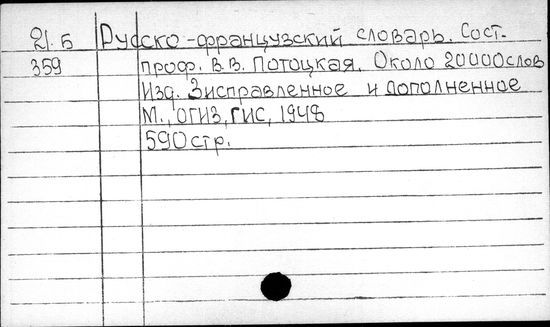 21. Б Русско-французский словарь. Сост.
359 проф. В.В. Потоцкая. Около 20000слов
Изд. 3исправленное и дополненное
М., ОГИЗ, ГИС, 1948
590стр.